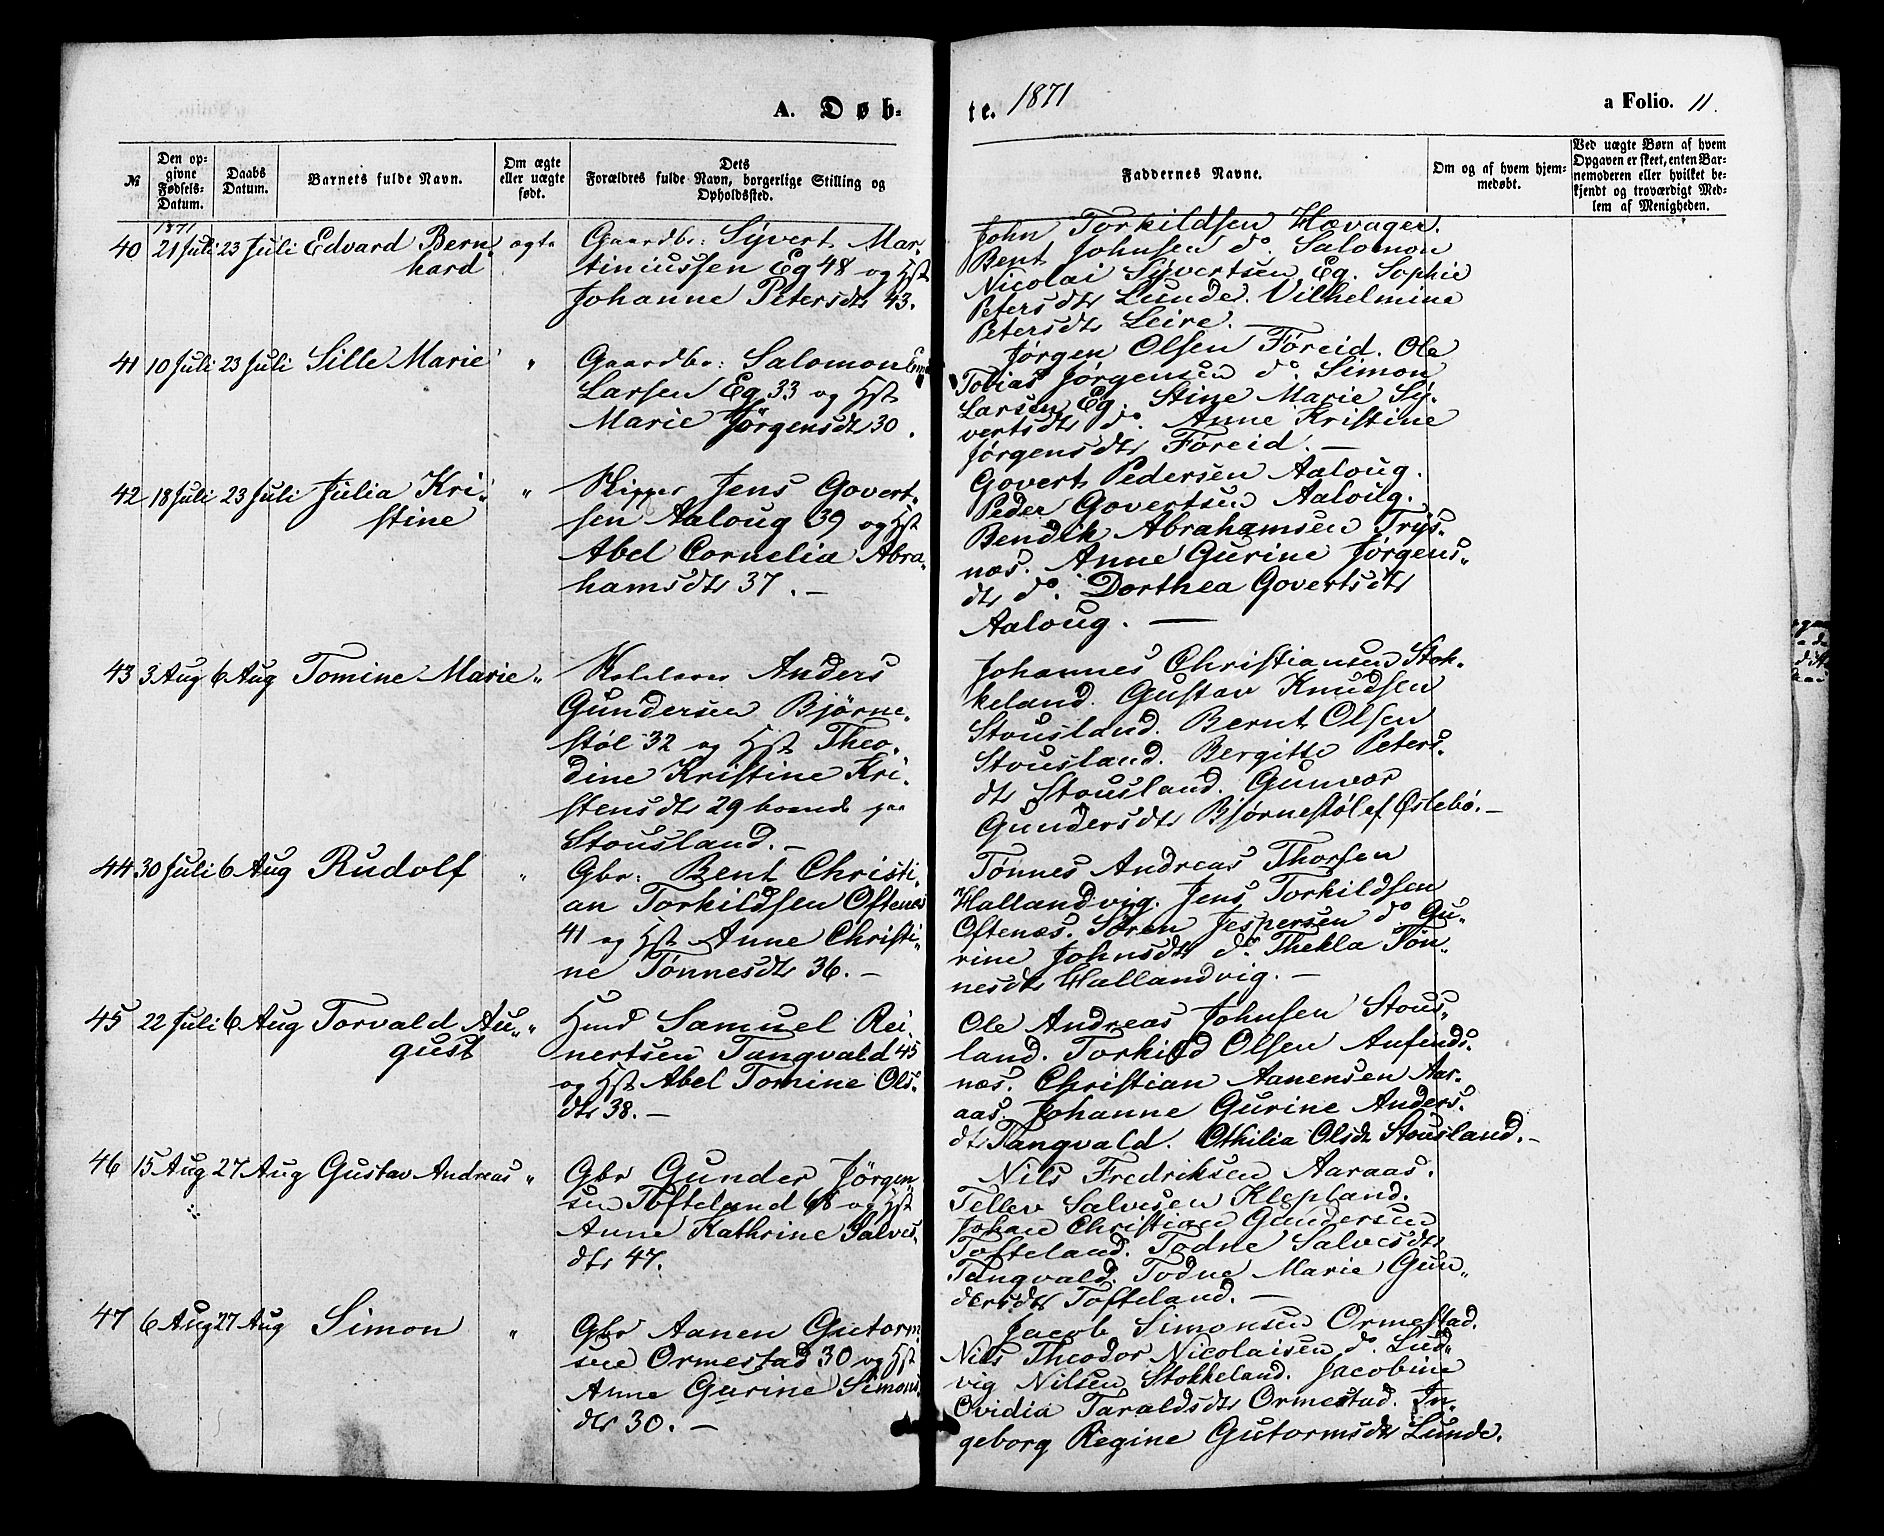 A. Døb-
te. 1871
a Folio. 11.
№
Den op-
givne
Fødsels-
Datum.
Daabs
Datum.
Barnets fulde Navn.
Om ægte
eller uægte
født.
Dets
Forældres fulde Navn, borgerlige Stilling og
Opholdssted.
Faddernes Navne.
Om og af hvem hjem-
medøbt.
Ved uægte Børn af hvem
Opgaven er skeet, enten Bar-
nemoderen eller hvilket be-
kjendt og troværdigt Med-
lem af Menigheden.
1871
40 21 Juli 23 Juli Edvard Bern-
hard
ægte
Gaardbr: Syvert Mar-
tiniussen Eg 48 og Hst
Johanne Petersdtr 43.
John Torkildsen Hævager.
Bent Johnsen do. Salomon
Nicolai Syvertsen Eg. Sophie
Petersdtr Lunde. Vilhelmine
Petersdtr Leire. —
41 10 Juli 23 Juli Sille Marie "
Gaardbr: Salomon
Larsen Eg 33 og Hst
Marie Jørgensdtr 30.
Jørgen Olsen Føreid. Ole
Tobias Jørgensen do. Simon
Larsen Eg. Stine Marie Sy-
vertsdtr do. Anne Kristine
Jørgensdtr Føreid. —
42 18 Juli 23 Juli Julia Kri-
stine
"
Skipper Jens Govert-
sen Aaloug 39 og Hst
Abel Cornelia Abra-
hamsdtr 37. —
Govert Pedersen Aaloug.
Peder Govertsen Aaloug.
Bendik Abrahamsen Trys-
næs. Anne Gurine Jørgens-
dtr do. Dorthea Govertsdtr
Aaloug. —
43 3 Aug 6 Aug Tomine Marie "
Anders
Gundersen Bjørne-
støl 32 og Hst Theo-
dine Kristine Kri-
stensdtr 29 boende paa
Stousland. —
Johannes Christiansen Stok-
keland. Gustav Knudsen
Stousland. Bernt Olsen
Stousland. Bergitte Peters-
dtr Stousland. Gunvor
Gundersdtr Bjørnestøl af Øslebø. —
44 30 Juli 6 Aug Rudolf "
Gbr: Bent Christi-
an Torkildsen Oftenæs
41 og Hst Anne Christi-
ne Tønnesdtr 36. —
Tønnes Andreas Thorsen
Hallandvig. Jens Torkildsen
Oftenæs. Søren Jespersen do. Gu-
rine Johnsdtr do. Thekla Tøn-
nesdtr Hallandvig. —
45 22 Juli 6 Aug Torvald Au-
gust
"
Hmd Samuel Rei-
nertsen Tangvald 45
og Hst Abel Tomine Ols-
dtr 38. —
Ole Andreas Johnsen Stous-
land. Torkild Olsen Aufinds-
næs. Christian Aanensen Aar-
aas. Johanne Gurine Anders-
dtr Tangvald. Othilia Olsdtr Stousland. —
46 15 Aug 27 Aug Gustav Andreas "
Gbr Gunder Jørgen-
sen Tofteland 48 og Hst
Anne Kathrine Salves-
dtr 47.
Nils Fredriksen Aaraas.
Tellev Salvesen Klepland.
Johan Christian Gundersen
Tofteland. Todne Salvesdtr
Tangvald. Todne Marie Gun-
dersdtr Tofteland. —
47 6 Aug 27 Aug Simon "
Gbr Aanen Gutorm-
sen Ormestad 30 og Hst
Anne Gurine Simons-
dtr 30. —
Jacob Simonsen Ormestad.
Nils Theodor Nicolaisen do. Lud-
vig Nilsen Stokkeland. Jacobine
Ovidia Taraldsdtr Ormestad. In-
geborg Regine Gutormsdtr Lunde.